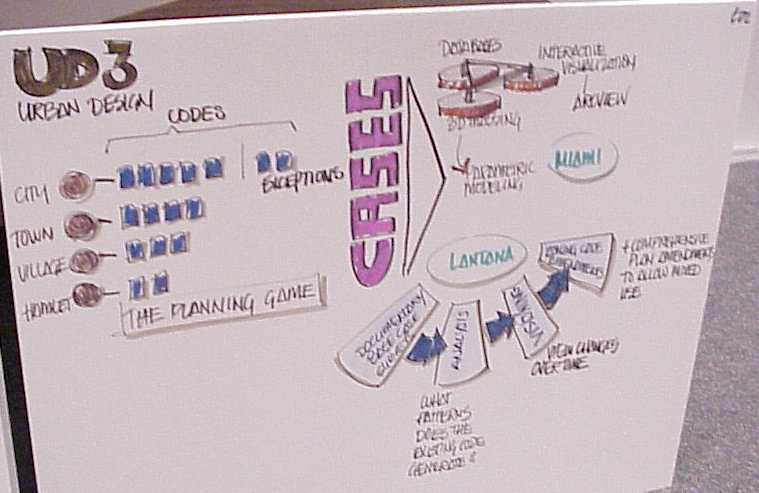 UD3
URBAN DESIGN
CODES
EXCEPTIONS
CITY
TOWN
VILLAGE
HAMLET
THE PLANNING GAME
CASES
DATABASES
INTERACTIVE
VISUALIZATION
ARCVIEW
3D MASSING
PARAMETRIC
MODELING
MIAMI
LANTONA
DOCUMENTARY
ANALYSIS
VISIONING
ZONING CODE
AMENDMENTS
+ COMPREHENSIVE
PLAN AMENDMENTS
TO ALLOW MIXED
USE
VIEW CHANGES
OVER TIME
WHAT
PATTERNS
DOES THE
EXISTING CODE
GENERATE?